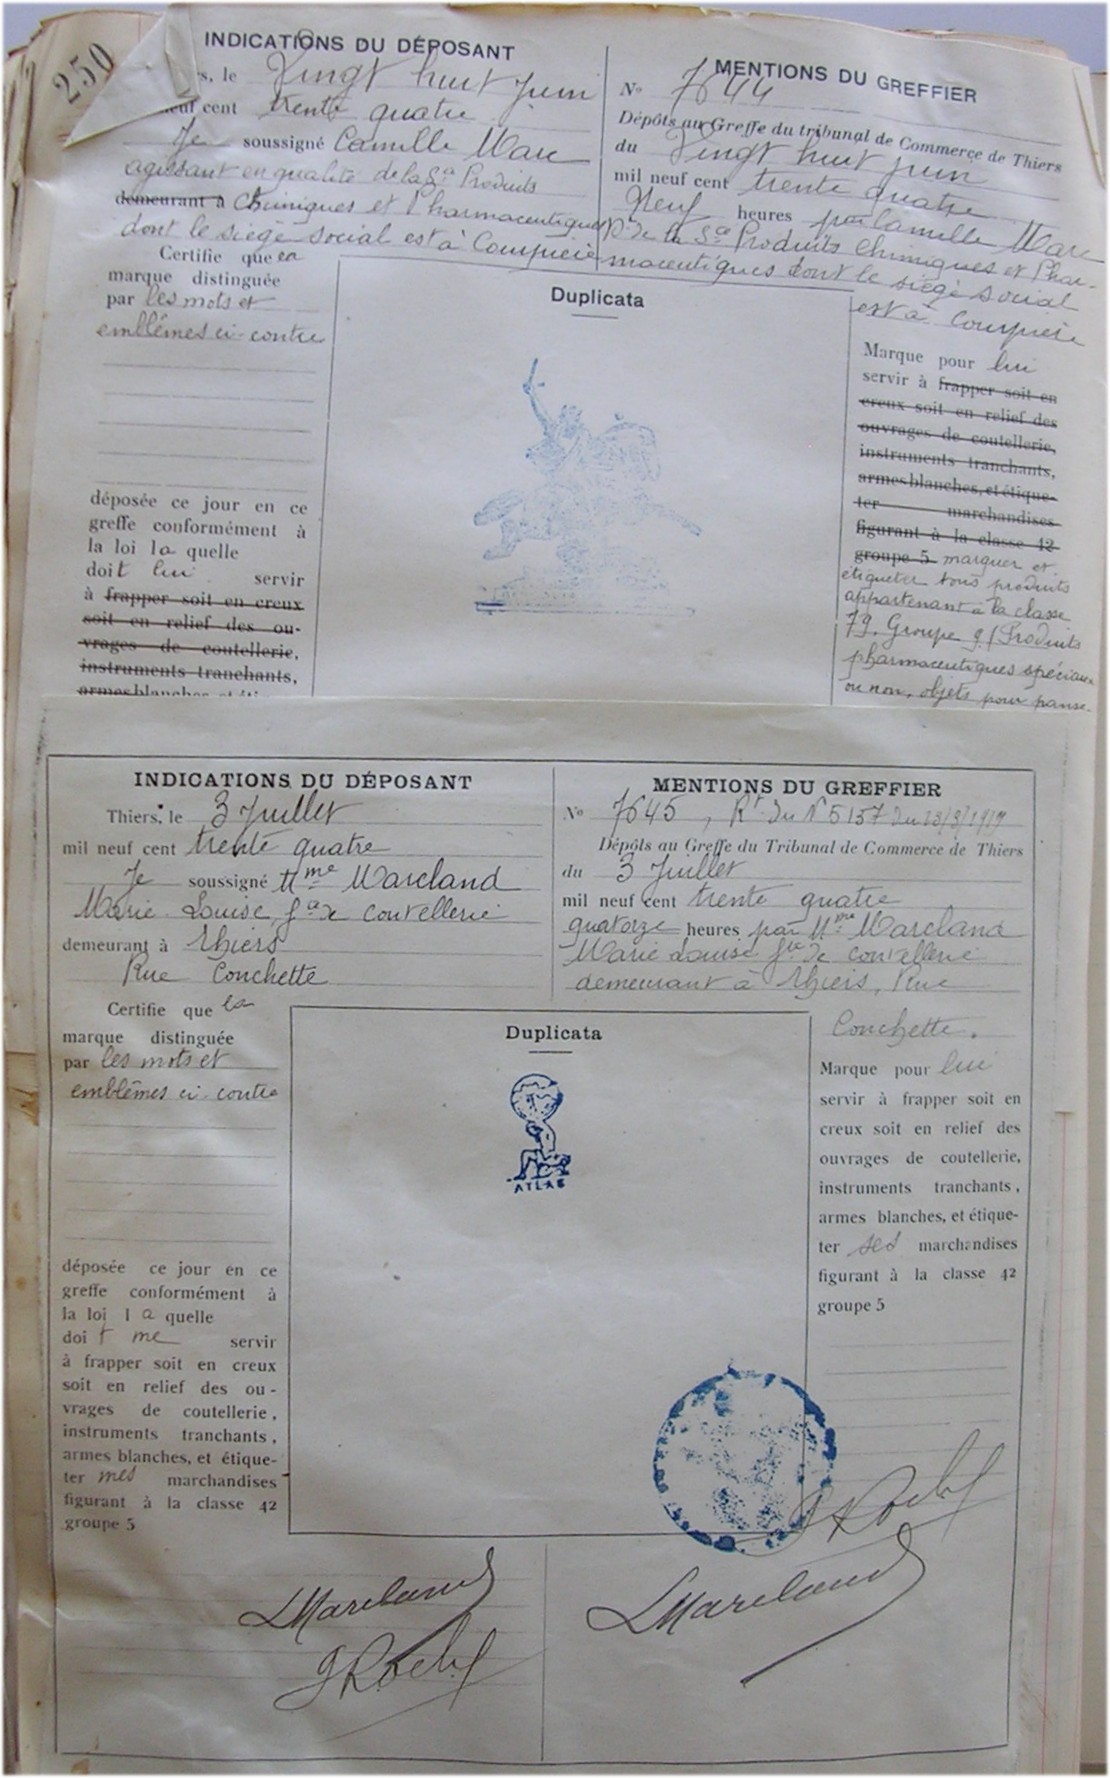 250
INDICATIONS DU DÉPOSANT
s, le Vingt huit Juin
neuf cent trente quatre
Je soussigné Camille Marc
agissant en qualité de la Sté Produits
demeurant à Chimiques et Pharmaceutiques
dont le siège social est à Courpière
Certifie que la
marque distinguée
par les mots et
emblêmes ci-contre
déposée ce jour en ce
greffe conformément à
la loi la quelle
doit lui servir
à frapper soit en creux
soit en relief des ou-
vrages de coutellerie,
instruments tranchants,
armes blanches, et éti
Duplicata
MENTIONS DU GREFFIER
No 7644
Dépôts au Greffe du tribunal de Commerce de Thiers
du Vingt huit juin
mil neuf cent trente quatre
Neuf heures par Camille Marc
Pt de la Sté Produits Chimiques et Phar-
maceutiques dont le siège social
est à Courpière
Marque pour lui
servir à frapper soit en
creux soit en relief des
ouvrages de coutellerie,
instruments tranchants,
armes blanches, et étique-
ter marchandises
figurant à la classe 42
groupe 5 marquer et
étiqueter tous produits
appartenant à la classe
79. Groupe 9 (Produits
pharmaceutiques spéciaux
ou non, objets pour panse-
INDICATIONS DU DÉPOSANT
Thiers, le 3 Juillet
mil neuf cent trente quatre
Je soussigné Mme Marcland
Marie Louise, fte de coutellerie
demeurant à Thiers
Rue Conchette
Certifie que la
marque distinguée
par les mots et
emblêmes ci-contre
déposée ce jour en ce
greffe conformément à
la loi la quelle
doit me servir
à frapper soit en creux
soit en relief des ou-
vrages de coutellerie,
instruments tranchants,
armes blanches, et étique-
ter mes marchandises
figurant à la classe 42
groupe 5
Duplicata
ATLAS
MENTIONS DU GREFFIER
No 7645, Rt du N° 5157 du 23/3/1919
Dépôts au Greffe du Tribunal de Commerce de Thiers
du 3 Juillet
mil neuf cent trente quatre
quatorze heures par Mme Marcland
Marie Louise fte de coutellerie
demeurant à Thiers, Rue
Conchette.
Marque pour lui
servir à frapper soit en
creux soit en relief des
ouvrages de coutellerie,
instruments tranchants,
armes blanches, et étique-
ter ses marchandises
figurant à la classe 42
groupe 5
LMarcland
LMarcland